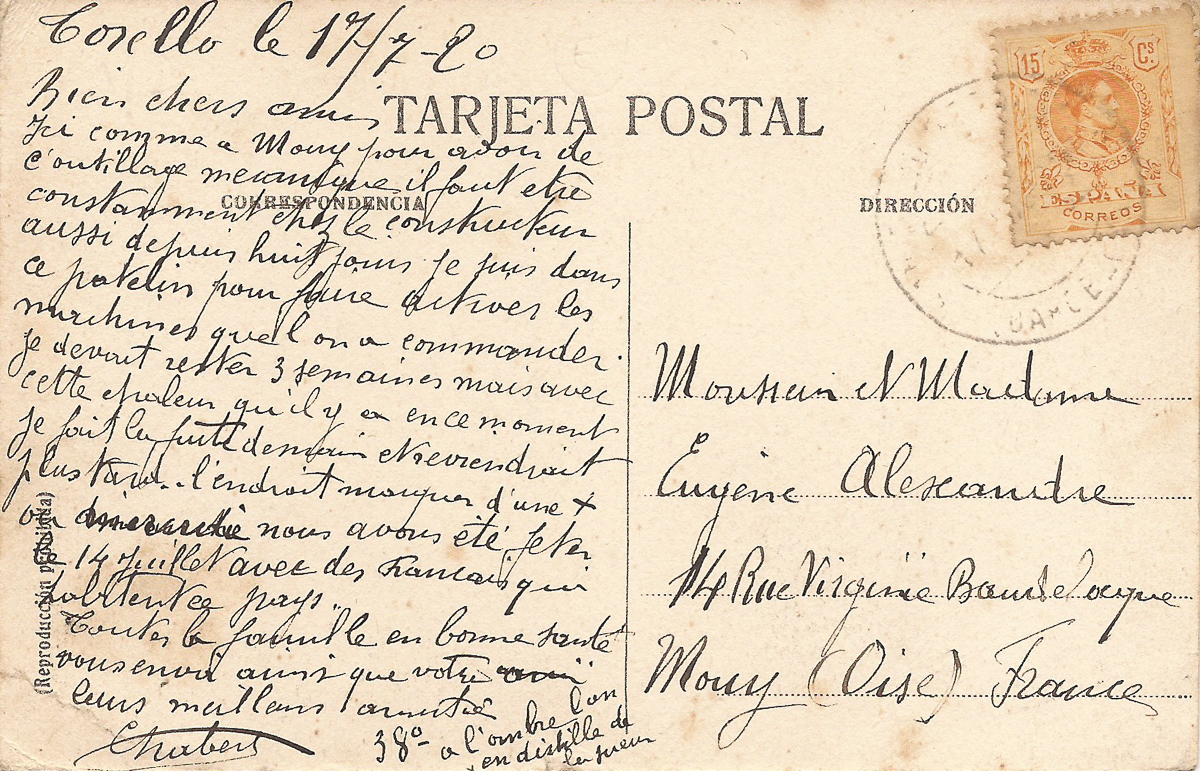 Torello le 17/7-20
Bien chers amis
TARJETA POSTAL
Ici comme a Mouy pour avoir de
l'outillage mecanique il faut etre
CORRESPONDENCIA
DIRECCIÓN
constamment chez le constructeur
aussi depuis huit jours je suis dans
ce patelin pour faire activer les
machines que l'on a commander.
je devait rester 3 semaines mais avec
cette chaleur qu'il y a en ce moment
je fait la fuite demain et reviendrait
plus tard.. l'endroit marquer d'une +
ou nous avons été feter
le 14 Juillet avec des Francais qui
habitent ce pays..
Toutes la famille en bonne santé
vous envoi ainsi que votre ami
leurs meilleurs amitié
Chabert
38° a l'ombre l'on
en distille de
la sueur
(Reproducción prohibida)
15 Cs.
ESPAÑA
CORREOS
BARCELO
Monsieur et Madame
Eugène Alexandre
14 Rue Virginie Baudelocque
Mouy (Oise) France